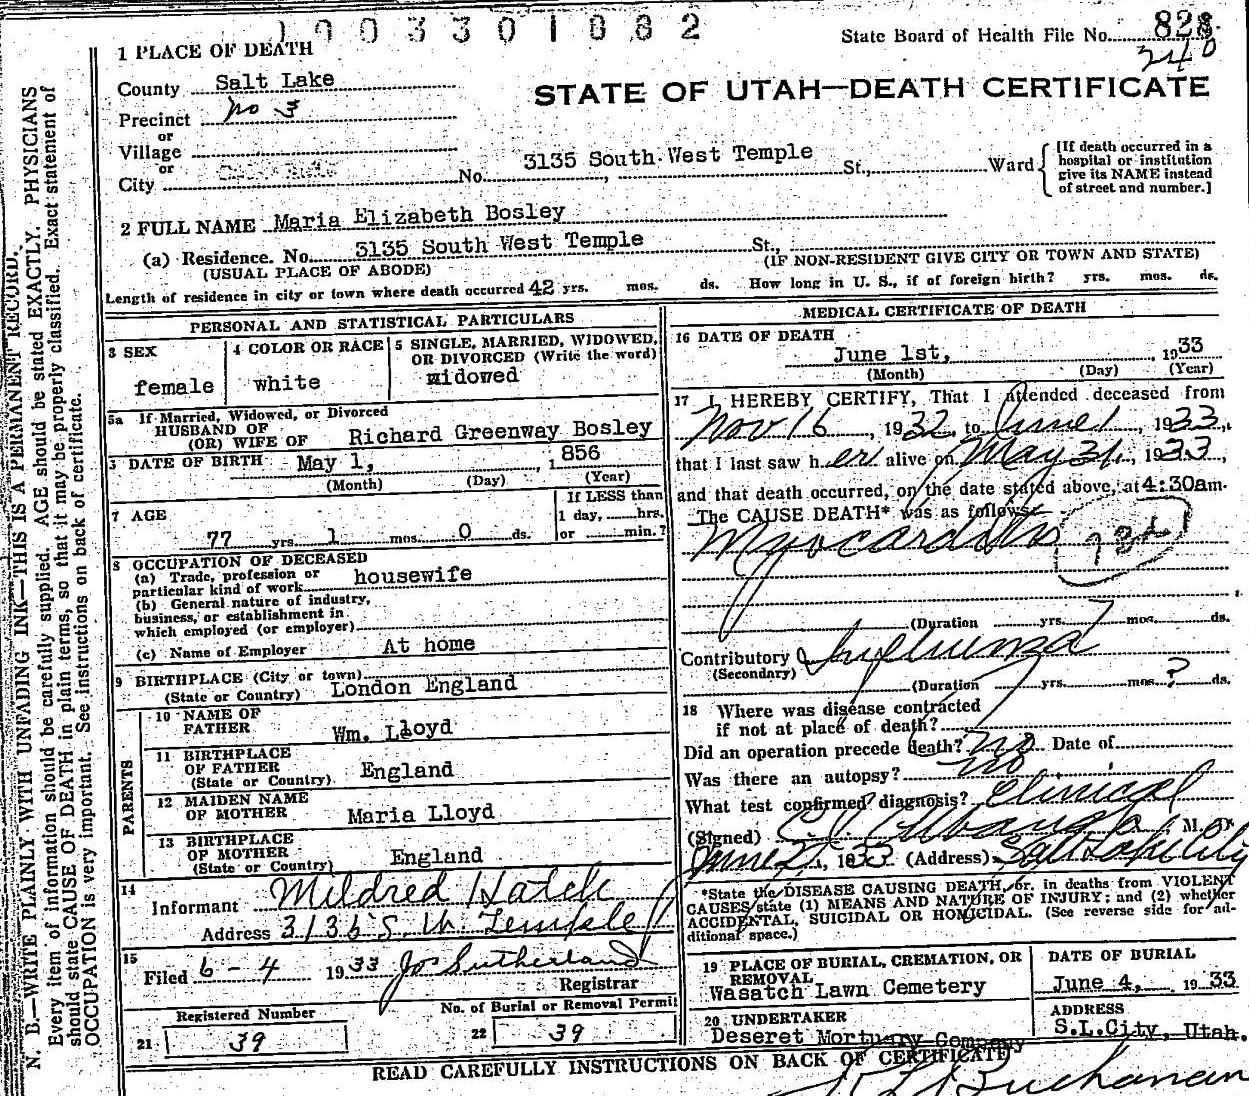 1003301882
State Board of Health File No. 828
240
1 PLACE OF DEATH
County Salt Lake
STATE OF UTAH—DEATH CERTIFICATE
Precinct No 3
or
Village
or
City No. 3135 South West Temple St., Ward
[If death occurred in a hospital or institution give its NAME instead of street and number.]
2 FULL NAME Maria Elizabeth Bosley
(a) Residence. No. 3135 South West Temple St.,
(USUAL PLACE OF ABODE) (IF NON-RESIDENT GIVE CITY OR TOWN AND STATE)
Length of residence in city or town where death occurred 42 yrs. mos. ds. How long in U. S., if of foreign birth? yrs. mos. ds.
PERSONAL AND STATISTICAL PARTICULARS
3 SEX
female
4 COLOR OR RACE
white
5 SINGLE, MARRIED, WIDOWED, OR DIVORCED (Write the word)
widowed
5a If Married, Widowed, or Divorced
HUSBAND OF
(OR) WIFE OF Richard Greenway Bosley
DATE OF BIRTH May 1, 1856
(Month) (Day) (Year)
7 AGE
77 yrs. 1 mos. 0 ds.
If LESS than
1 day, hrs.
or min.?
8 OCCUPATION OF DECEASED
(a) Trade, profession or
particular kind of work housewife
(b) General nature of industry,
business, or establishment in
which employed (or employer)
(c) Name of Employer At home
9 BIRTHPLACE (City or town)
(State or Country) London England
PARENTS
10 NAME OF
FATHER Wm. Lloyd
11 BIRTHPLACE
OF FATHER England
(State or Country)
12 MAIDEN NAME
OF MOTHER Maria Lloyd
13 BIRTHPLACE
OF MOTHER England
(State or Country)
14
Informant Mildred Hatch
Address 3136 S. W. Temple
15
Filed 6-4 1933 Jos Sutherland
Registrar
Registered Number
21 39
No. of Burial or Removal Permit
22 39
MEDICAL CERTIFICATE OF DEATH
16 DATE OF DEATH
June 1st, 1933
(Month) (Day) (Year)
17 I HEREBY CERTIFY, That I attended deceased from
Nov 16, 1932, to June 1, 1933,
that I last saw her alive on May 31, 1933,
and that death occurred, on the date stated above, at 4:30am.
The CAUSE DEATH* was as follows:
Myocarditis
(Duration yrs. mos. ds.
Contributory Influenza
(Secondary)
(Duration yrs. mos. ? ds.
18 Where was disease contracted
if not at place of death?
Did an operation precede death? no Date of
Was there an autopsy? no
What test confirmed diagnosis? Clinical
(Signed) M. D.
June 2, 1933 (Address) Salt Lake City
*State the DISEASE CAUSING DEATH, or. in deaths from VIOLENT
CAUSES state (1) MEANS AND NATURE OF INJURY; and (2) whether
ACCIDENTAL, SUICIDAL OR HOMICIDAL. (See reverse side for ad-
ditional space.)
19 PLACE OF BURIAL, CREMATION, OR
REMOVAL
Wasatch Lawn Cemetery
DATE OF BURIAL
June 4, 1933
20 UNDERTAKER
Deseret Mortuary Company
ADDRESS
S.L.City, Utah.
Buchanan
READ CAREFULLY INSTRUCTIONS ON BACK OF CERTIFICATE
N. B.—WRITE PLAINLY WITH UNFADING INK—THIS IS A PERMANENT RECORD.
Every item of information should be carefully supplied. AGE should be stated EXACTLY. PHYSICIANS
should state CAUSE OF DEATH in plain terms, so that it may be properly classified. Exact statement of
OCCUPATION is very important. See instructions on back of certificate.